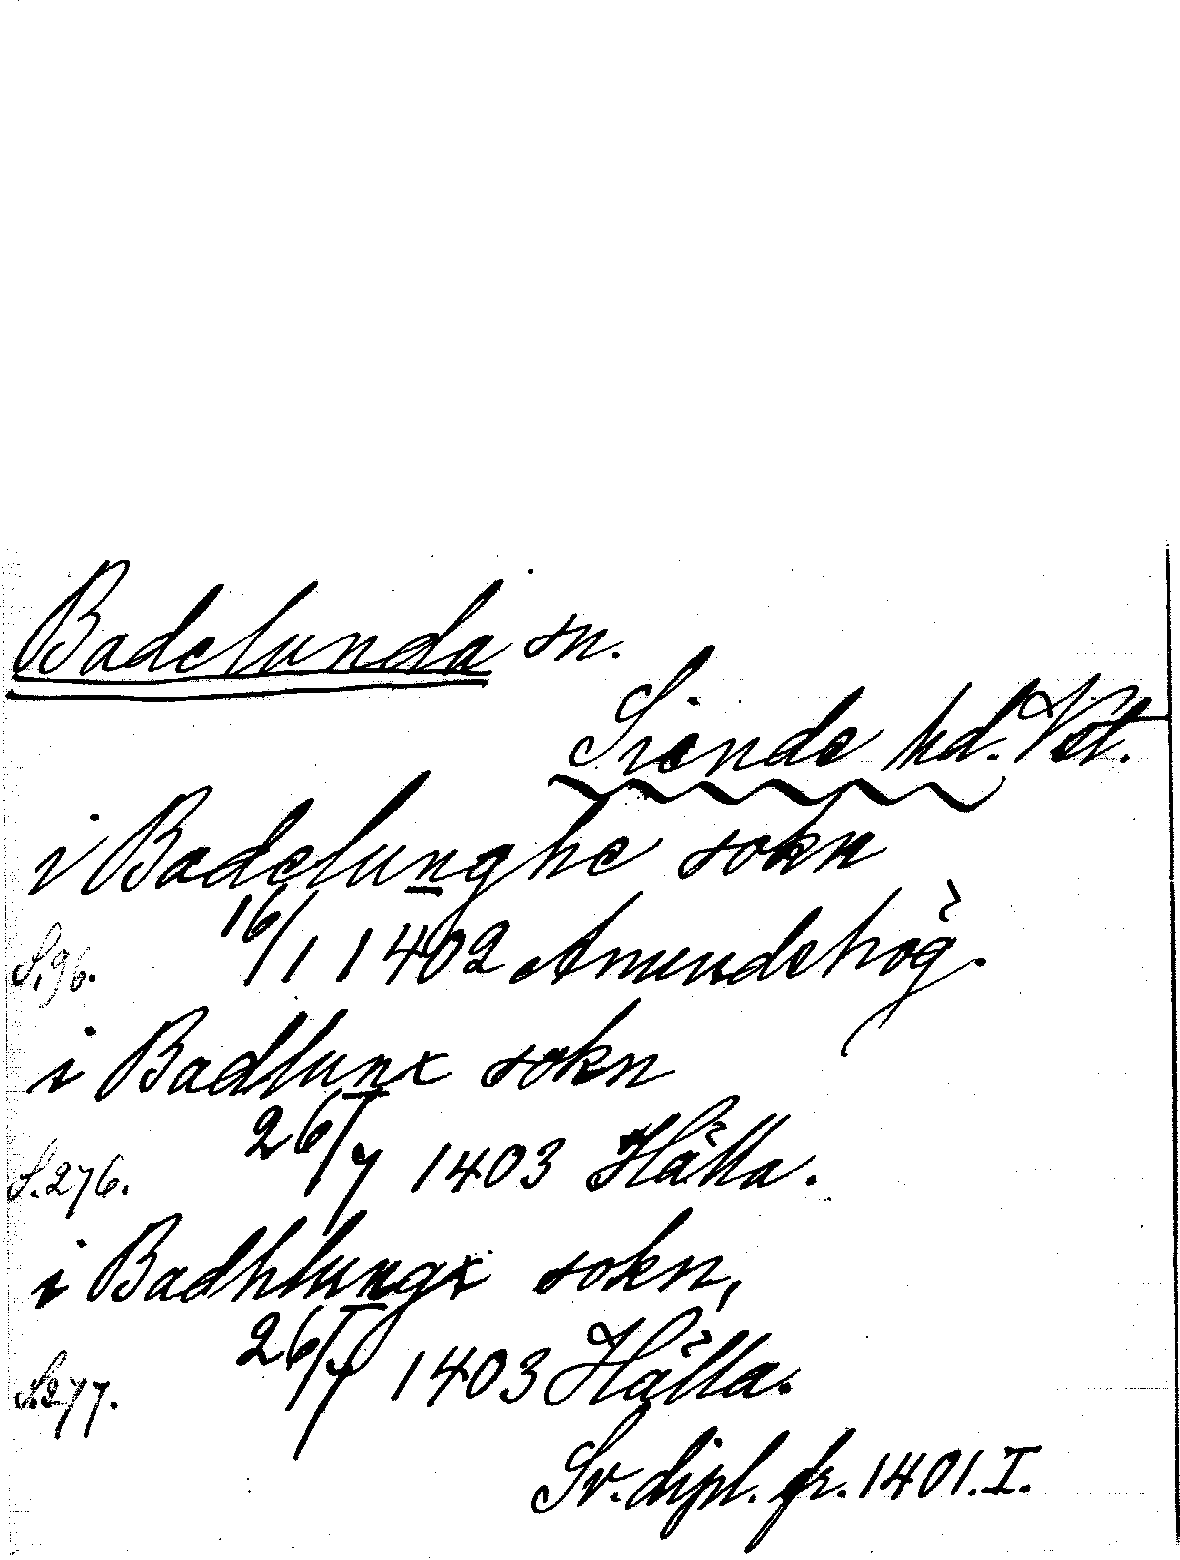 Badelunda sn.
Siende hd. Vst.
i Badelunghe sokn
S. 96. 16/1 1402 Amundehög.
i Badlunx sokn
S. 276. 26/7 1403 Hälla.
i Badhlungx sokn,
S. 277. 26/7 1403 Hälla.
Sv. dipl. fr. 1401. I.